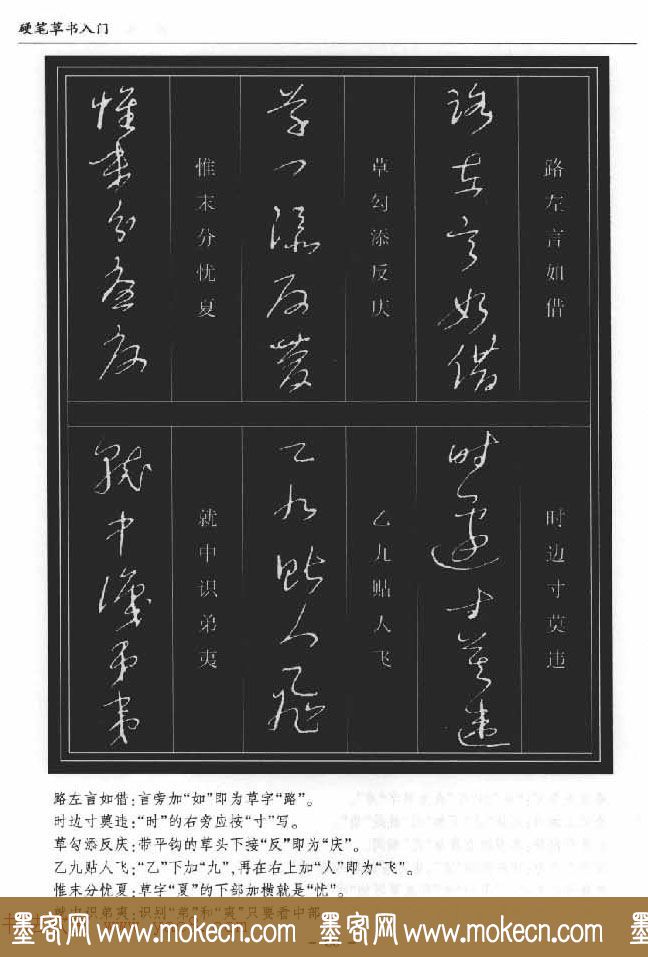 硬笔草书入门
路左言如借
时边寸莫违
草勾添反庆
乙九贴人飞
惟末分忧夏
就中识弟夷
路左言如借
时边寸莫违
草勾添反庆
乙九贴人飞
惟末分忧夏
就中识弟夷
路左言如借:言旁加“如”即为草字“路”。
时边寸莫违:“时”的右旁应按“寸”写。
草勾添反庆:带平钩的草头下接“反”即为“庆”。
乙九贴人飞:“乙”下加“九”,再在右上加“人”即为“飞”。
惟末分忧夏:草字“夏”的下部加横就是“忧”。
就中识弟夷:识别“弟”和“夷”只要看中部
墨客网 www.mokecn.com 墨客网 www.mokecn.com 墨客网